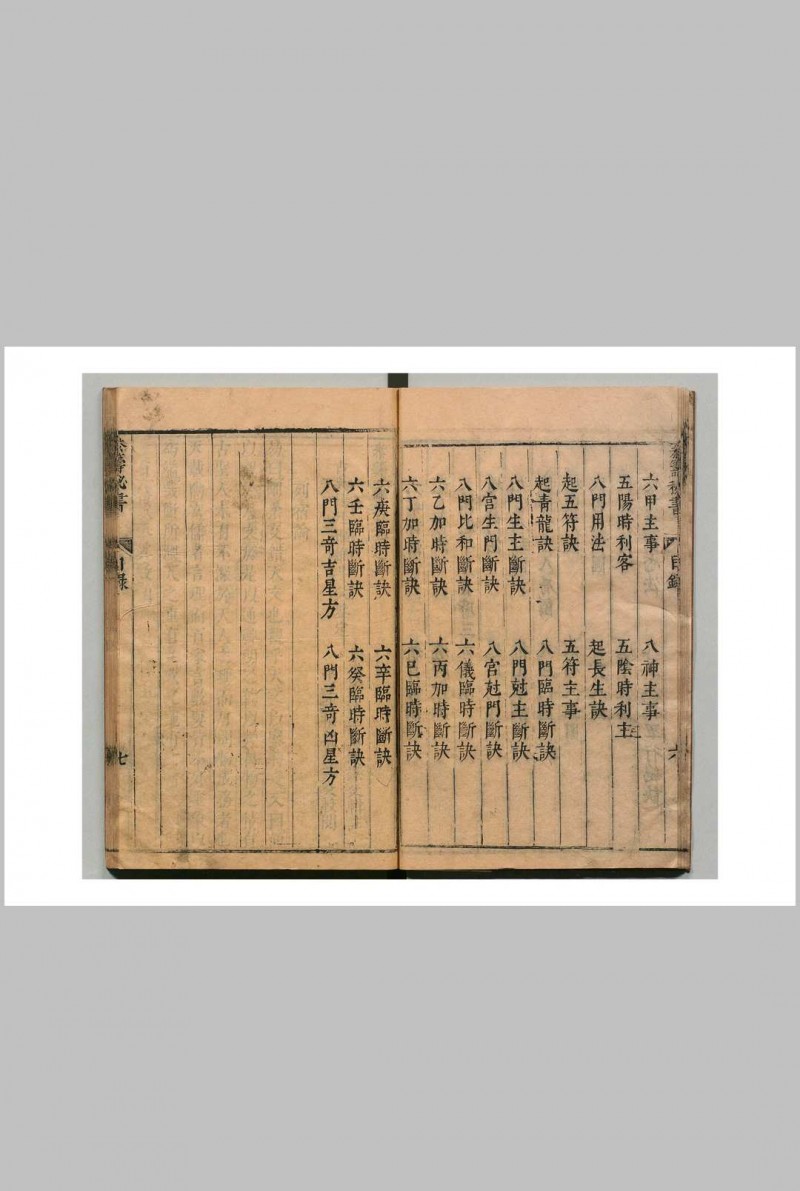 六甲主事　八神主事
五陽時利客　五陰時利主
八門用法　起長生訣
起五符訣　五符主事
起青龍訣　八門臨時斷訣
八門生主斷訣　八門尅主斷訣
八宮生門斷訣　八宮尅門斷訣
八門比和斷訣　六儀臨時斷訣
六乙加時斷訣　六丙加時斷訣
六丁加時斷訣　六巳臨時斷訣
六庚臨時斷訣　六辛臨時斷訣
六壬臨時斷訣　六癸臨時斷訣
八門三奇吉星方　八門三奇凶星方
秘書　目錄　六
秘書　目錄　七